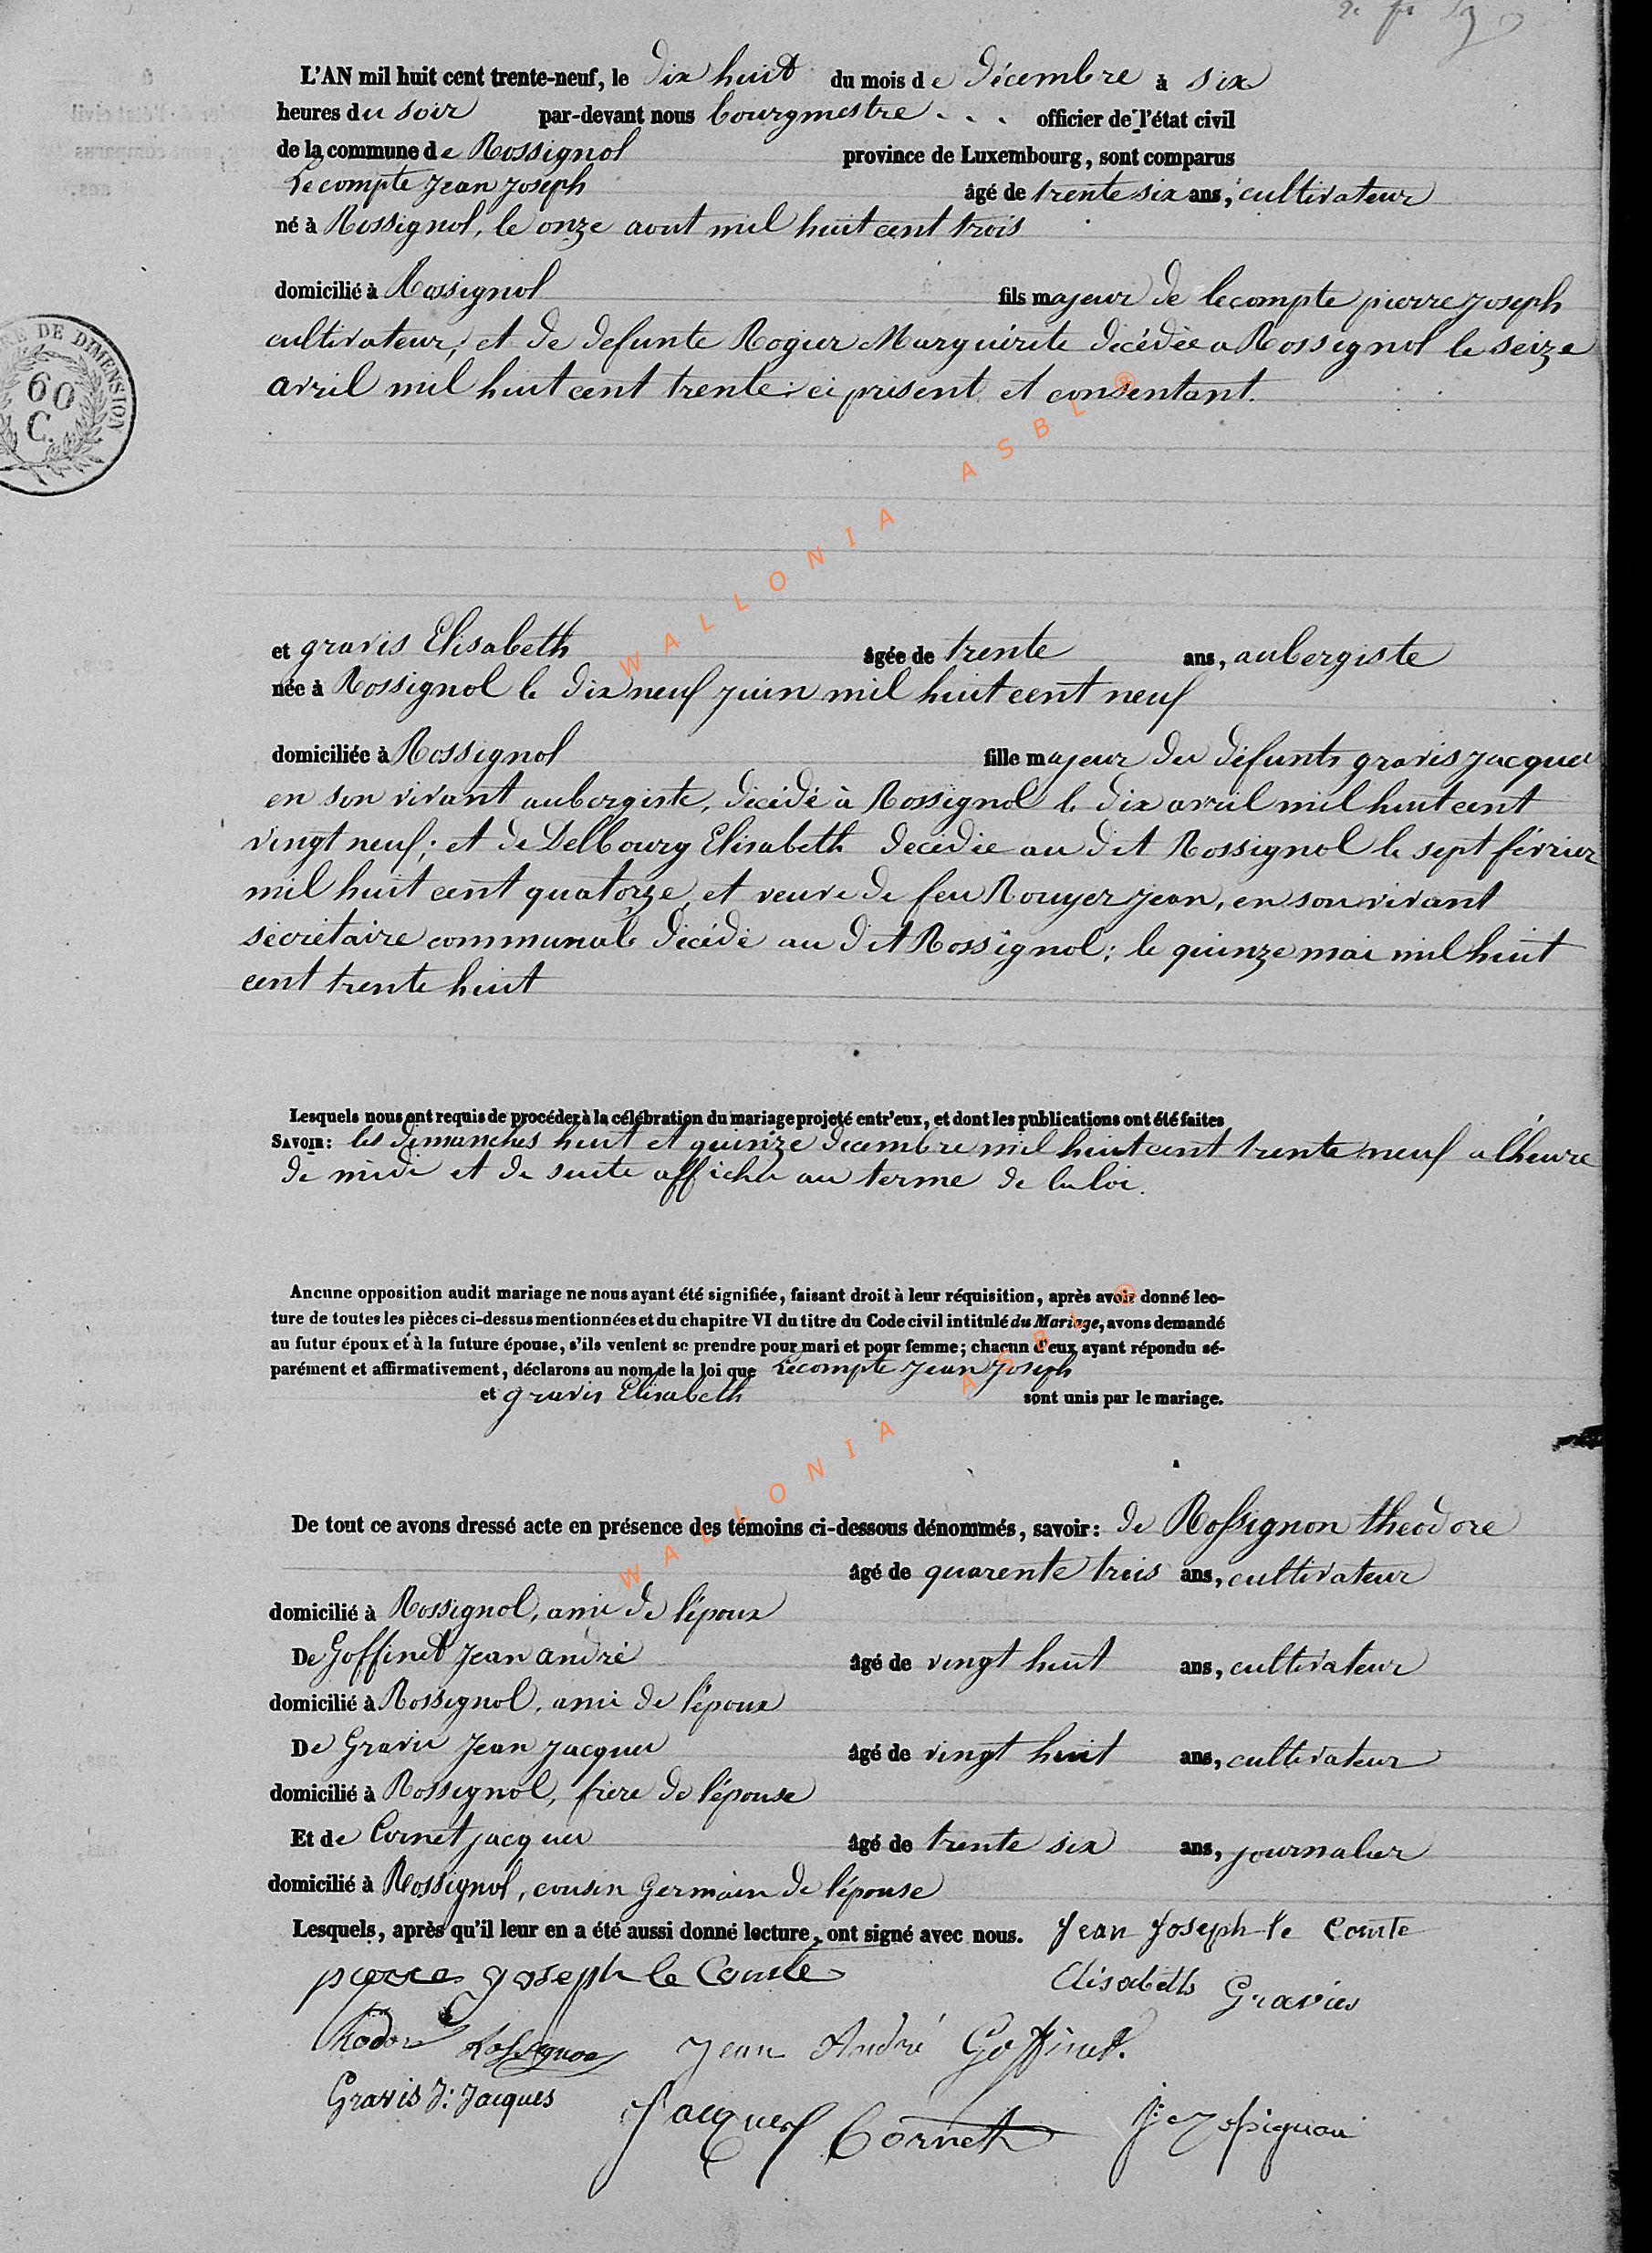 L'AN mil huit cent trente-neuf, le dix huit du mois de décembre à six
heures du soir par-devant nous bourgmestre . . . officier de l'état civil
de la commune de Rossignol province de Luxembourg, sont comparus
Lecompte Jean Joseph âgé de trente six ans, cultivateur
né à Rossignol, le onze aout mil huit cent trois
domicilié à Rossignol fils majeur de lecompte pierre joseph
cultivateur, et de defunte Rogier Marguérite décédée a Rossignol le seize
avril mil huit cent trente: ci présent et consentant.
RE DE DIMENSION
60
C.
et gravis Elisabeth âgée de trente ans, aubergiste
née à Rossignol le dix neuf juin mil huit cent neuf
domiciliée à Rossignol fille majeur des défunts gravis jacques
en son vivant aubergiste, décédé à Rossignol le dix avril mil huit cent
vingt neuf; et de Delbourg Elisabeth decédée au dit Rossignol le sept février
mil huit cent quatorze, et veuve de feu Rouyer jean, en son vivant
secrétaire communale décédé au dit Rossignol; le quinze mai mil huit
cent trente huit
Lesquels nous ont requis de procéder à la célébration du mariage projeté entr'eux, et dont les publications ont été faites
SAVOIR: les dimanches huit et quinze decembre mil huit cent trente neuf a l'heure
de midi et de suite affiches au terme de la loi.
Aucune opposition audit mariage ne nous ayant été signifiée, faisant droit à leur réquisition, après avoir donné lec-
ture de toutes les pièces ci-dessus mentionnées et du chapitre VI du titre du Code civil intitulé du Mariage, avons demandé
au futur époux et à la future épouse, s'ils veulent se prendre pour mari et pour femme; chacun d'eux ayant répondu sé-
parément et affirmativement, déclarons au nom de la loi que Lecompte Jean Joseph
et gravis Elisabeth sont unis par le mariage.
De tout ce avons dressé acte en présence des témoins ci-dessous dénommés, savoir: de Rossignon théodore
âgé de quarente trois ans, cultivateur
domicilié à Rossignol, ami de l'époux
De Goffinet Jean andré âgé de vingt huit ans, cultivateur
domicilié à Rossignol, ami de l'époux
De Gravis Jean Jacques âgé de vingt huit ans, cultivateur
domicilié à Rossignol, frère de l'épouse
Et de Cornet jacques âgé de trente six ans, journalier
domicilié à Rossignol, cousin Germain de l'épouse
Lesquels, après qu'il leur en a été aussi donné lecture, ont signé avec nous. Jean Joseph le Comte
pierre joseph le Comte Elisabeth Gravies
Rossignon Jean André Goffinet.
Gravis J: Jacques Jacques Cornet
WALLONIA ASBL ®
WALLONIA ASBL ®